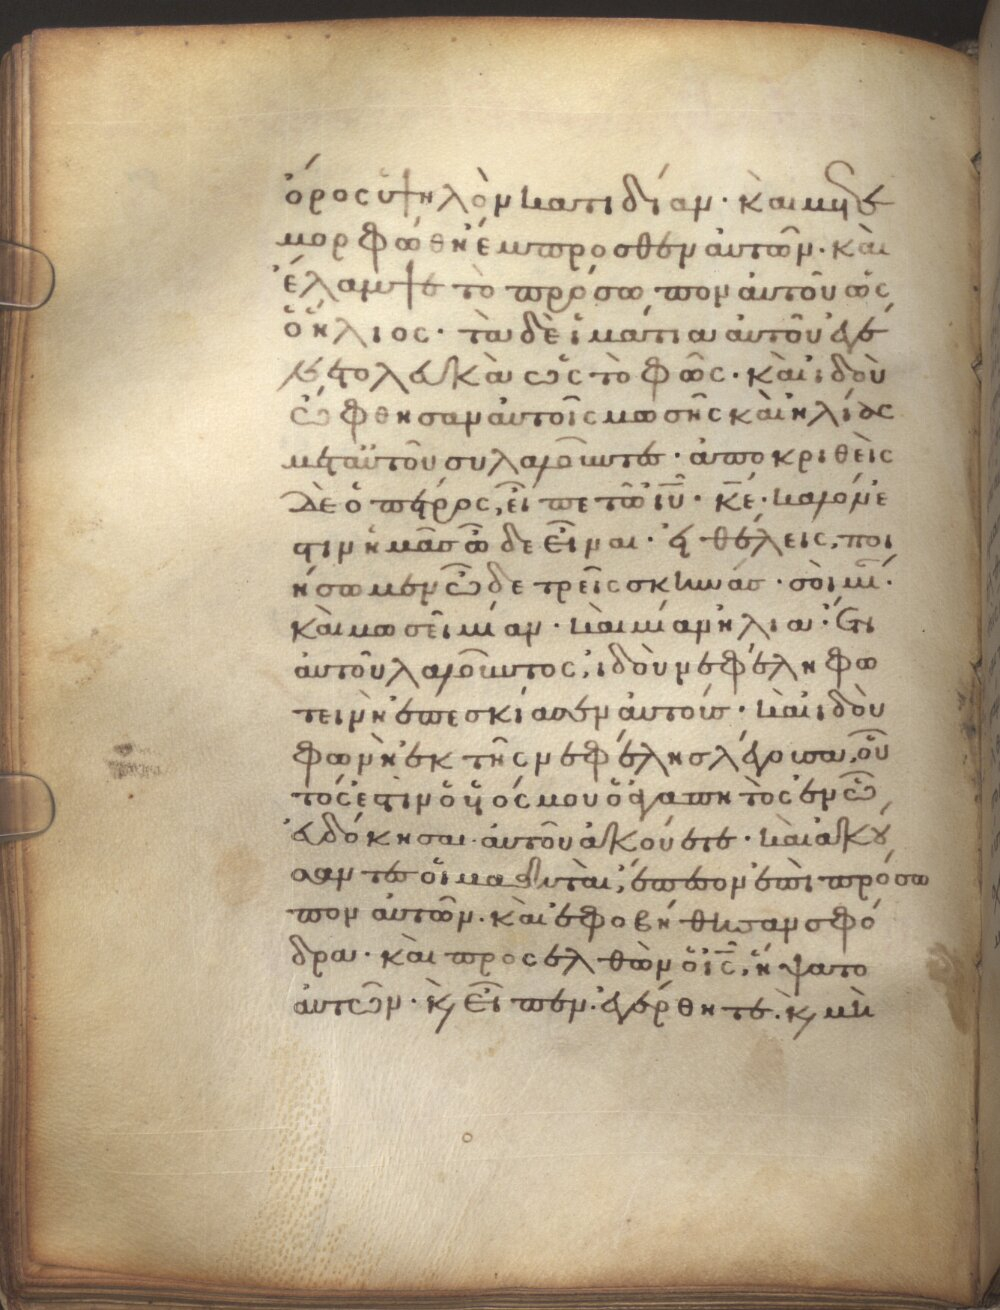 ὄρος ὑψηλὸν κατιδίαν· καὶ μετε
μορφώθη ἔμπροσθεν αὐτῶν· καὶ
ἔλαμψε τὸ πρόσωπον αὐτοῦ ὡς
ὁ ἥλιος· τὰ δὲ ἱμάτια αὐτοῦ ἐγέ
νετο λευκὰ ὡς τὸ φῶς· καὶ ἰδοὺ
ὤφθησαν αὐτοῖς μωσῆς καὶ ἠλίας
μετ αὐτοῦ συλλαλοῦντες· ἀποκριθεὶς
δὲ ὁ πέτρος, εἶπε τῶ ἰῦ· κε, καλόν ἐ
στιν ἡμᾶς ὧδε εἶναι· εἰ θέλεις, ποι
ήσωμεν ὧδε τρεῖς σκηνάς· σοὶ μίαν·
καὶ μωσεῖ μίαν· καὶ μίαν ἠλία· ἔτι
αὐτοῦ λαλοῦντος, ἰδοὺ νεφέλη φω
τεινὴ ἐπεσκίασεν αὐτούς· καὶ ἰδοὺ
φωνὴ ἐκ τῆς νεφέλης λέγουσα, οὗ
τός ἐστιν ὁ υἱός μου ὁ ἀγαπητὸς ἐν ὧ
εὐδόκησα· αὐτοῦ ἀκούετε· καὶ ἀκού
σαντες οἱ μαθηταὶ, ἔπεσον ἐπὶ πρόσω
πον αὐτῶν· καὶ ἐφοβήθησαν σφό
δρα· καὶ προσελθὼν ὁ ις, ἥψατο
αὐτῶν· κ εἶπεν· ἐγέρθητε· κ μὴ